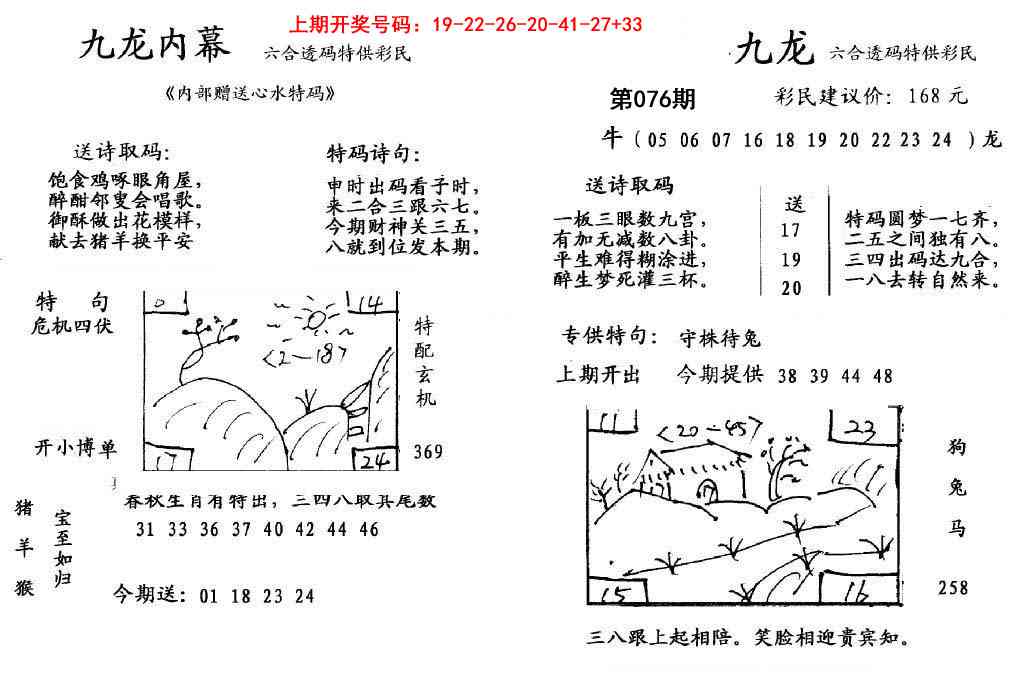 上期开奖号码：19-22-26-20-41-27+33
九龙内幕 六合透码特供彩民
《内部赠送心水特码》
送诗取码：
饱食鸡啄眼角屋，
醉酣邻叟会唱歌。
御酥做出花模样，
献去猪羊换平安
特码诗句：
申时出码看子时，
来二合三跟六七。
今期财神关三五，
八就到位发本期。
特 句
危机四伏
开小博单
14
<2—18>
24
特配玄机
369
春秋生肖有特出，三四八取其尾数
31 33 36 37 40 42 44 46
猪羊猴
宝至如归
今期送：01 18 23 24
九龙 六合透码特供彩民
第076期 彩民建议价：168元
牛（05 06 07 16 18 19 20 22 23 24 ）龙
送诗取码
一板三眼数九宫，
有加无减数八卦。
平生难得糊涂进，
醉生梦死灌三杯。
送
17
19
20
特码圆梦一七齐，
二五之间独有八。
三四出码达九合，
一八去转自然来。
专供特句： 守株待兔
上期开出 今期提供 38 39 44 48
11
<20—45>
23
15
16
狗
兔
马
258
三八跟上起相陪。笑脸相迎贵宾知。